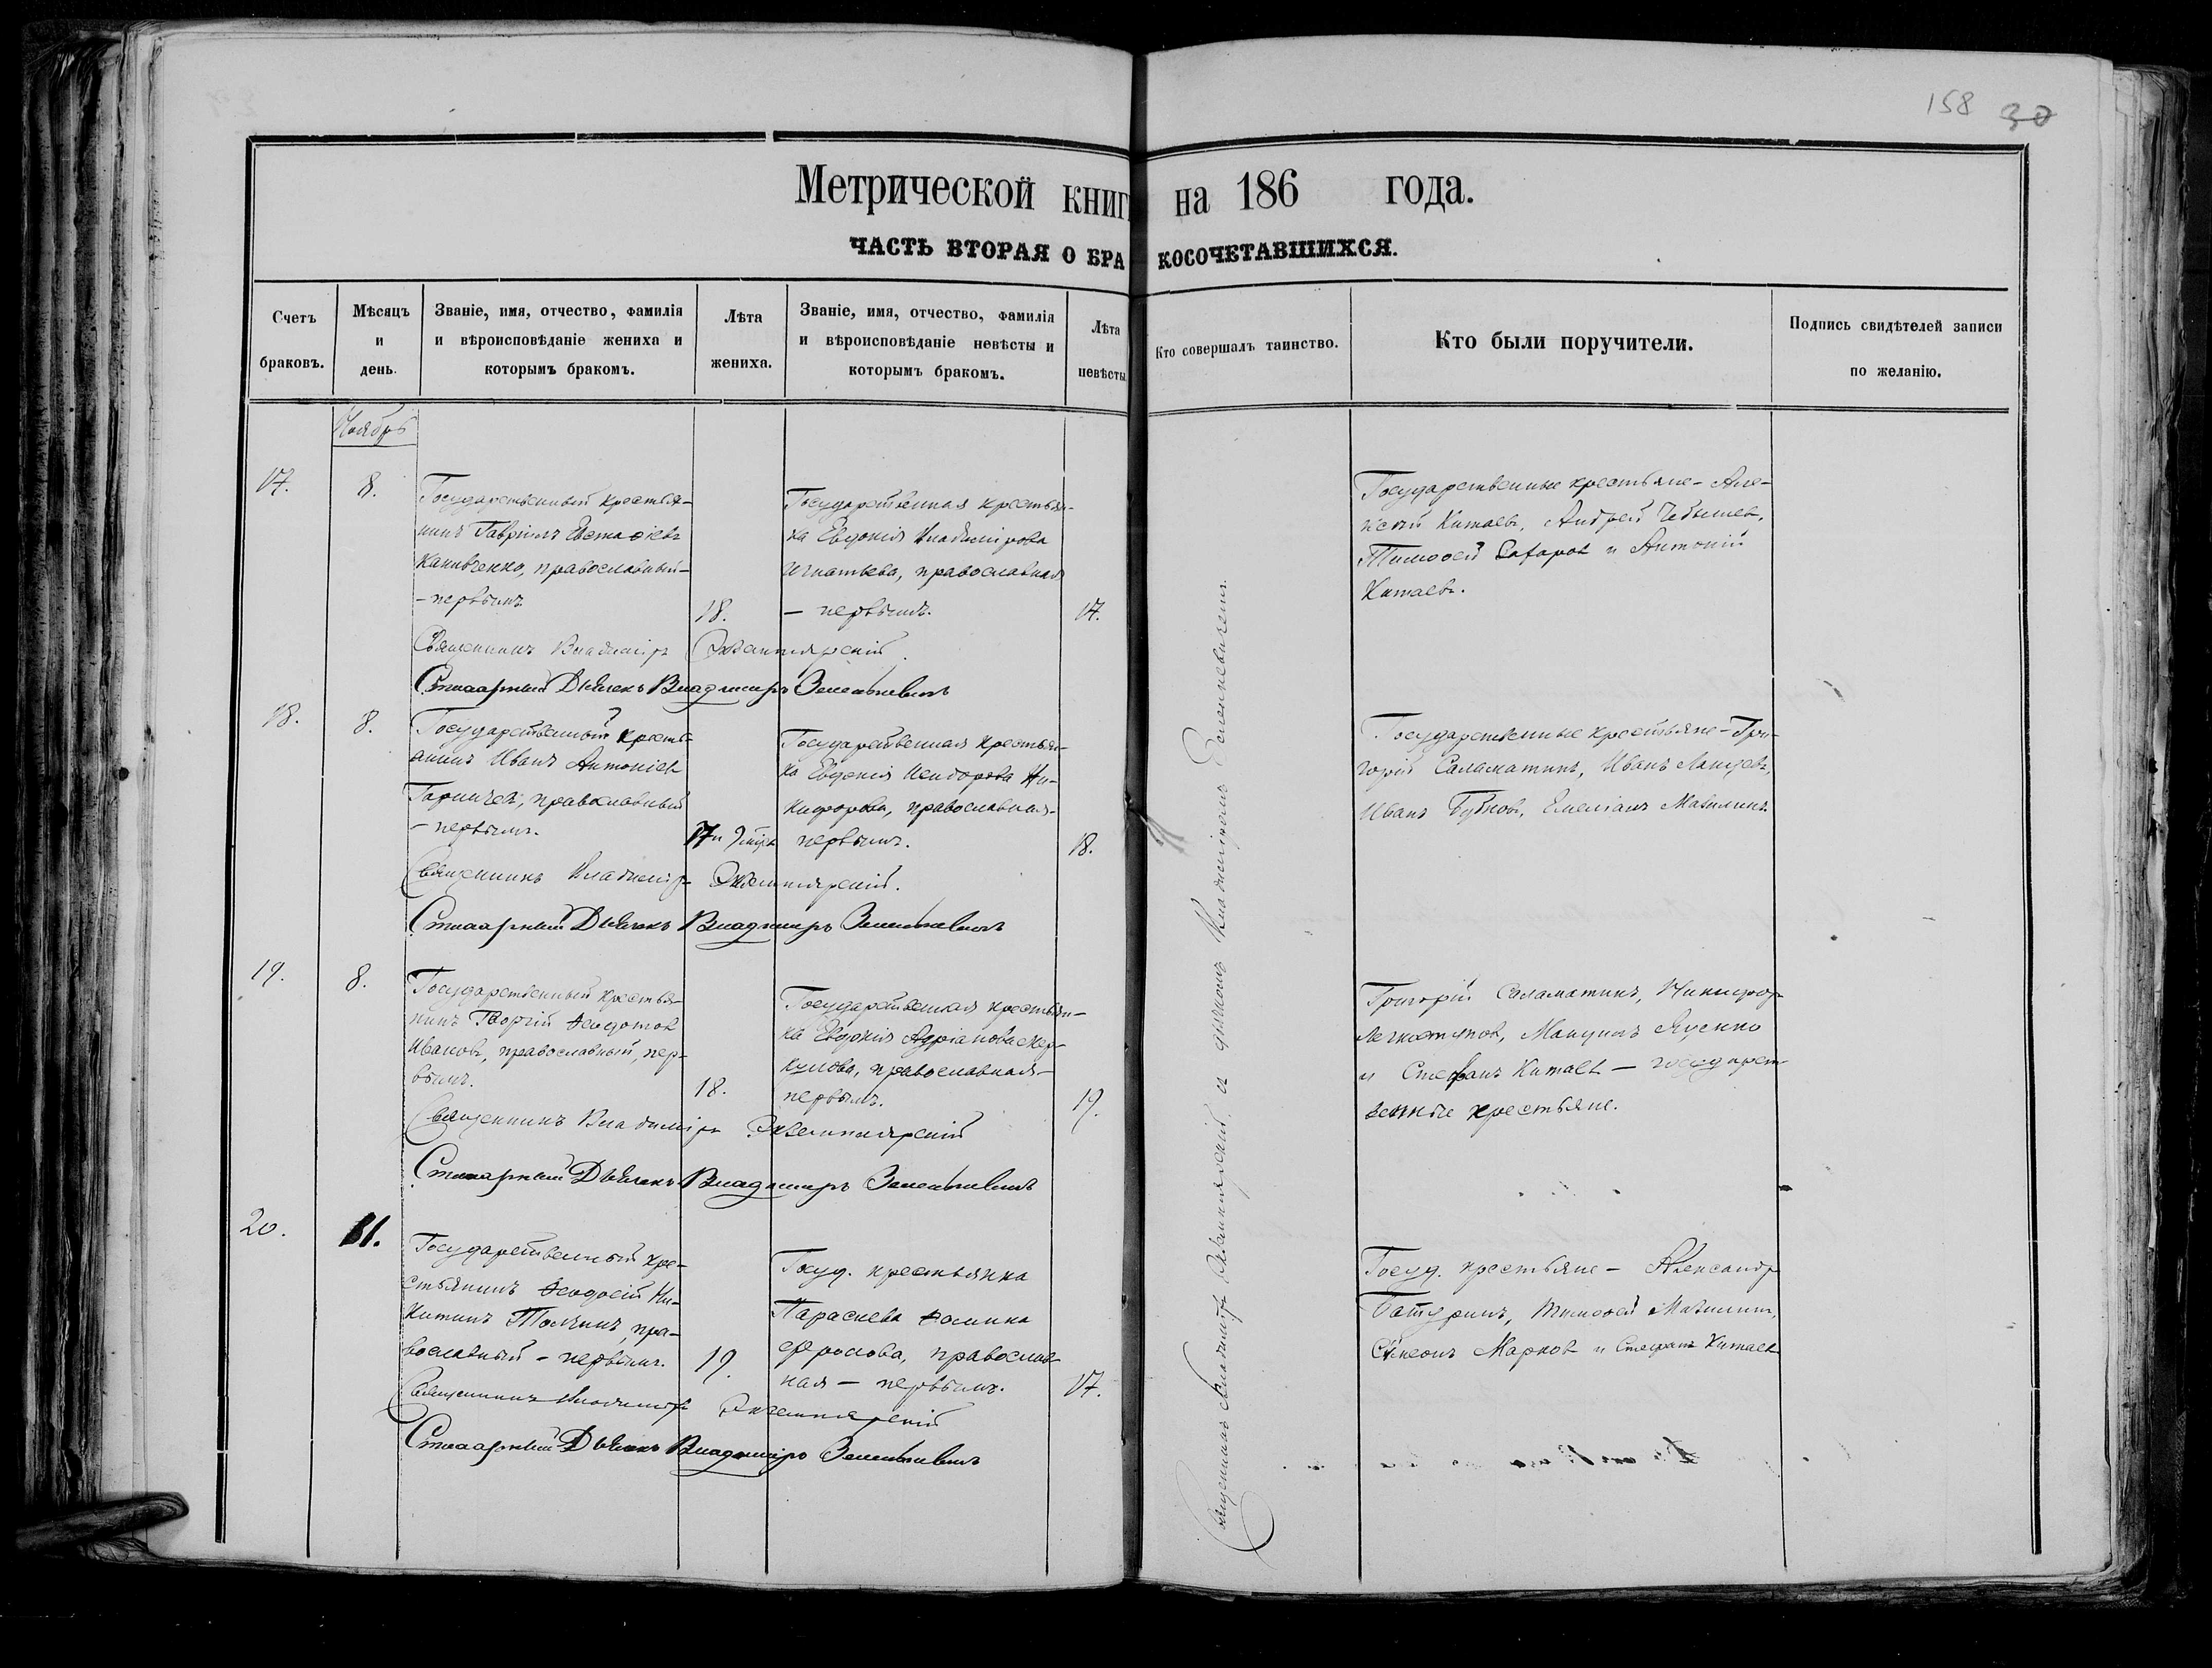 158 30
Метрической книг на 186 года.
ЧАСТЬ ВТОРАЯ О БРАКОСОЧЕТАВШИХСЯ.
Счетъ браковъ.
Мѣсяцъ и день.
Званіе, имя, отчество, фамилія
и вѣроисповѣданіе жениха и
которымъ бракомъ.
Лѣта жениха.
Званіе, имя, отчество, фамилія
и вѣроисповѣданіе невѣсты и
которымъ бракомъ.
Лѣта невѣсты
Кто совершалъ таинство.
Кто были поручители.
Подпись свидѣтелей записи
по желанію.
Ноябрь
17.
8.
Государственный крестья-
нинъ Гавріилъ Евстаѳіевъ
православный-
- первымъ
18.
Государственная крестьян-
ка Евдокія Владимірова
Игнатьева, православная
— первымъ.
17.
Государственные крестьяне - Але-
ксѣй Китаевъ, Андрей
Тимоѳей и Антоній
Китаевъ.
Священникъ Владиміръ Экземплярскій.
Владимиръ
18.
8.
Государственный кресть-
янинъ Иванъ Антоніевъ
православный
- первымъ.
17 и
Государственная крестьян-
ка Евгенія Исидорова Ни-
кифорова, православная-
первымъ.
18.
Государственные крестьяне - Гри-
горій Саламатинъ, Иванъ
Иванъ Бубновъ, Емеліанъ
Священникъ Владиміръ Экземплярскій.
Владимиръ
19.
8.
Государственный крестья-
нинъ Георгій Ѳеодотовъ
Ивановъ, православный, пер-
вымъ.
18.
Государственная крестьян-
ка Евдокія Адріанова Мер-
кулова, православная-
первымъ.
19.
Григорій Саламатинъ, Никифоръ
и Стефанъ Китаевъ — государст
венные крестьяне.
Священникъ Владиміръ Экземплярскій
Владимиръ
20.
Государственный кре-
стьянинъ Ѳеодосій Ни-
китинъ пра-
вославный - первымъ.
19.
Госуд. крестьянка
Параскева Ѳомина
Фролова, православ-
ная — первымъ.
17.
Госуд. крестьяне - Александръ
Батуринъ, Тимоѳей
Симеонъ Марковъ и Стефанъ Китаевъ
Священникъ Владиміръ Экземплярскій
Владимиръ
Священникъ Владиміръ Экземплярскій и дьячкомъ Владиміромъ